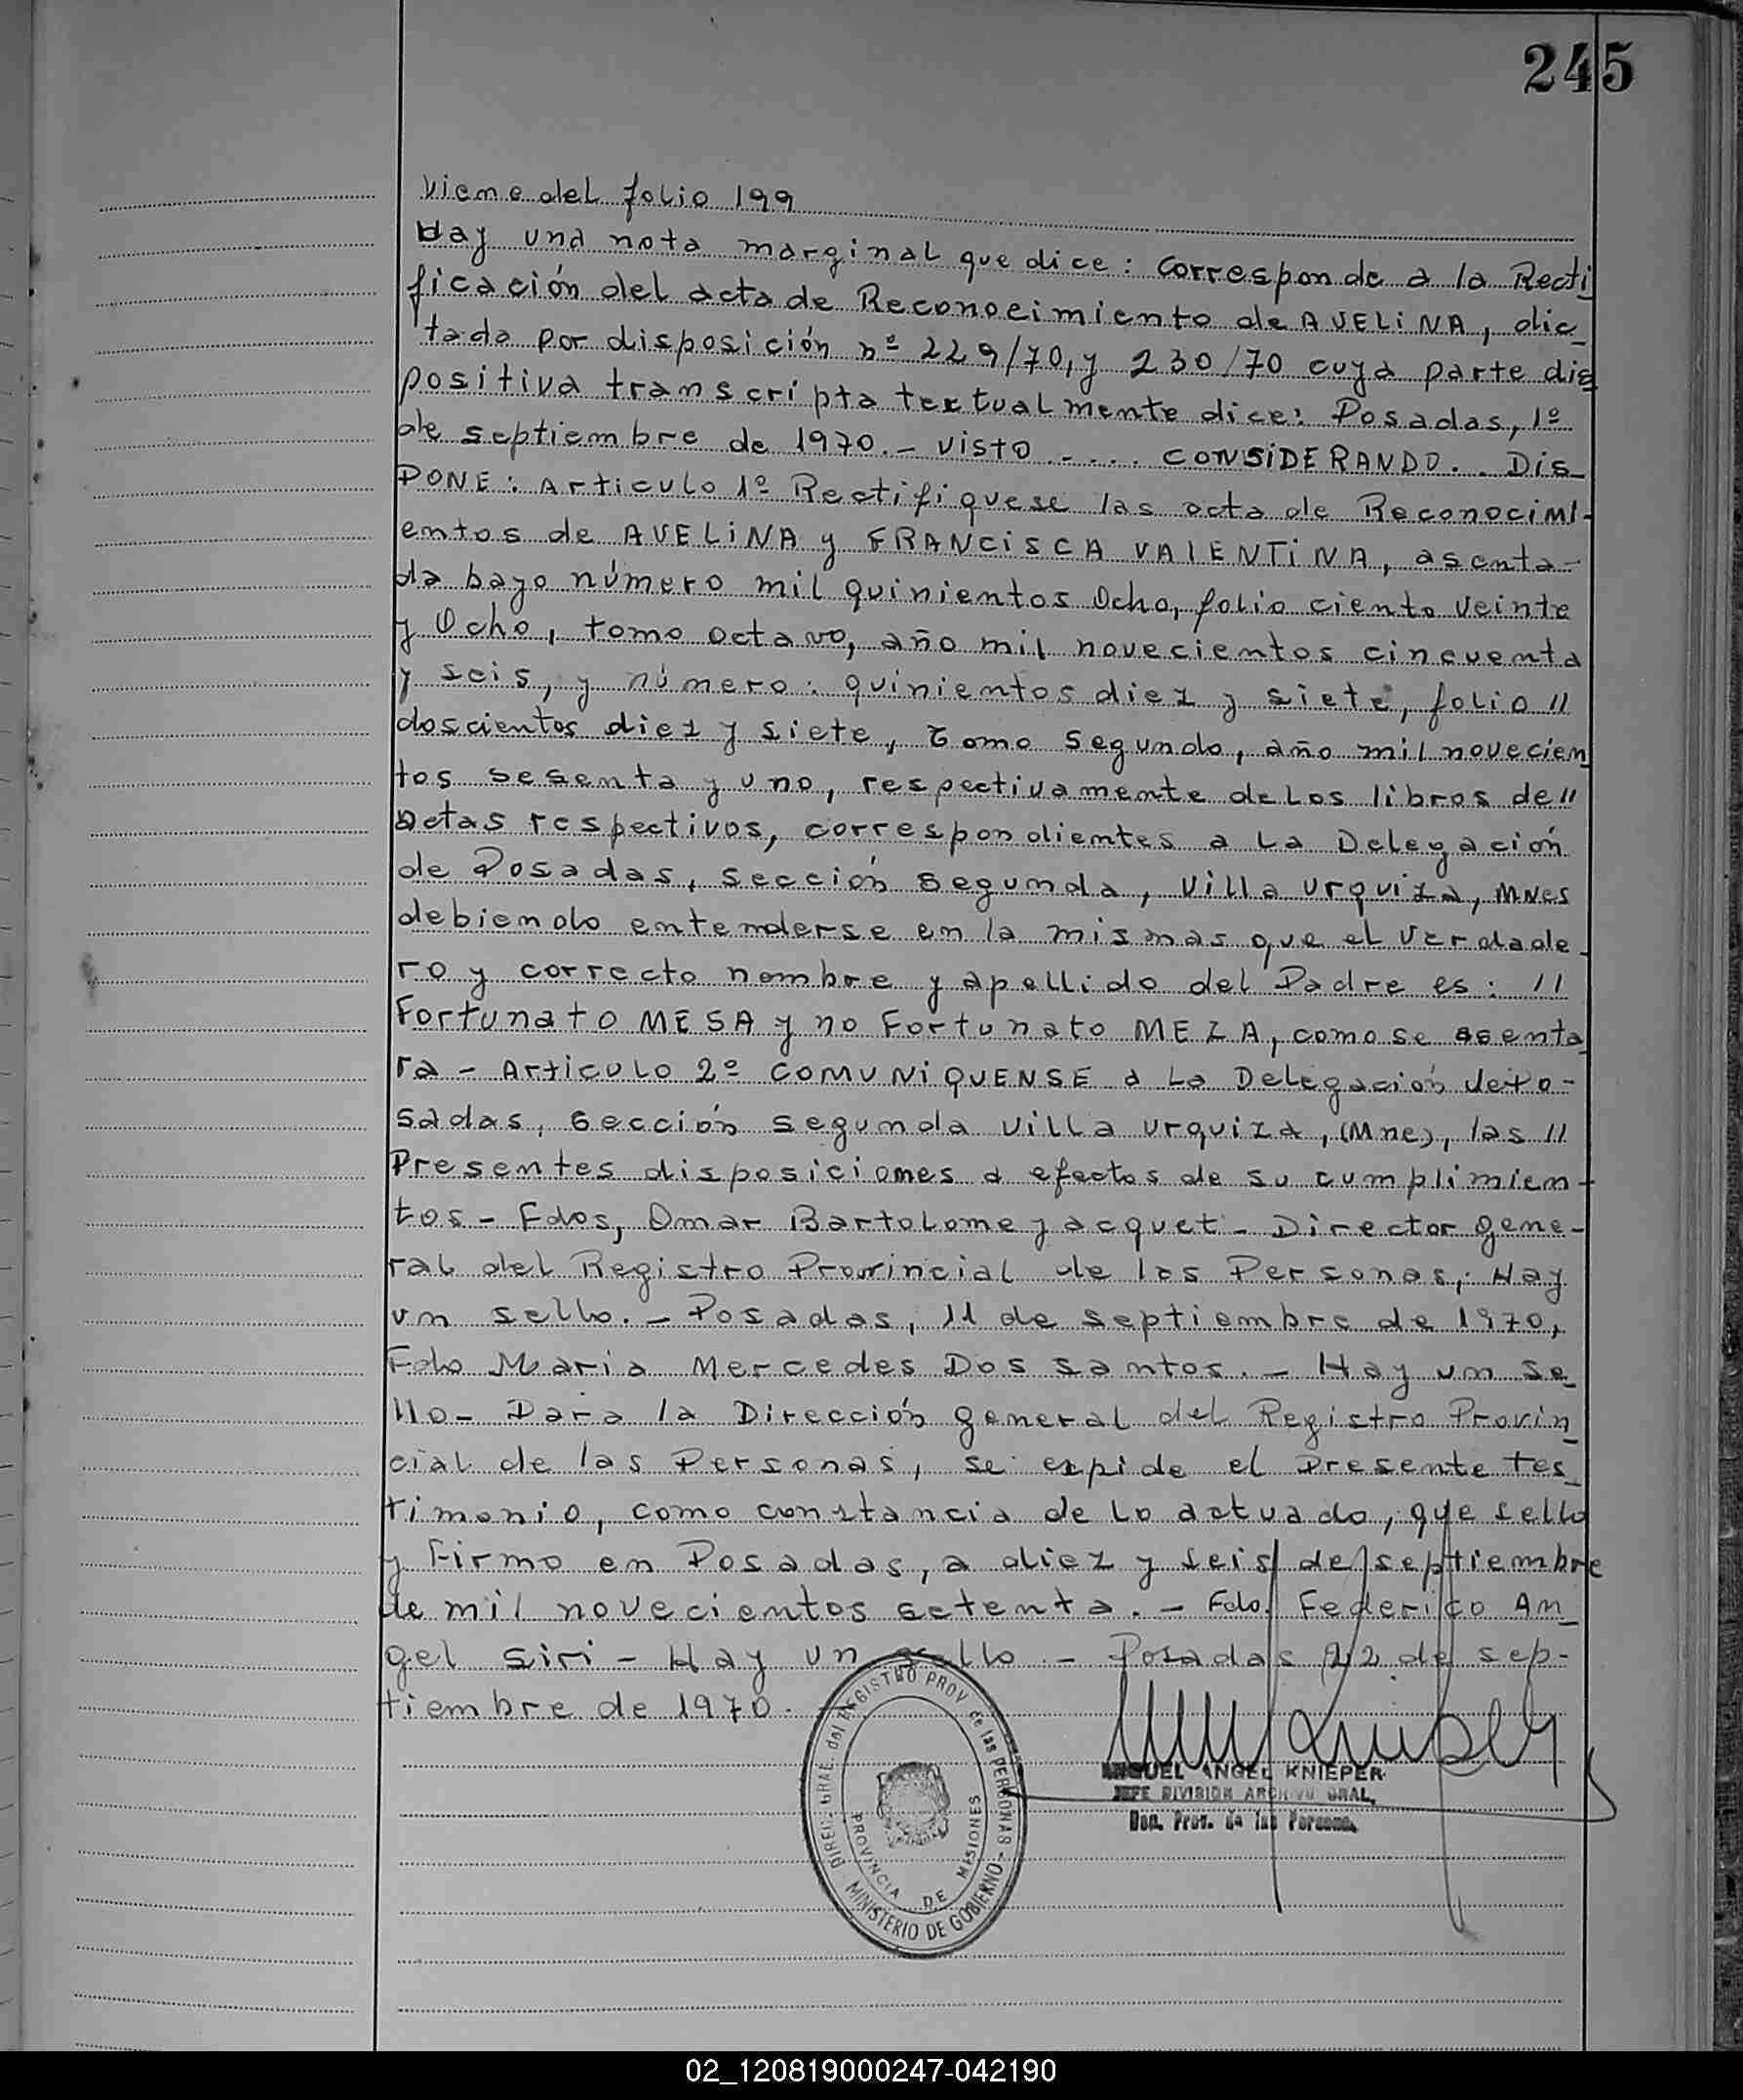 245
Viene del folio 199
Hay una nota marginal que dice: Corresponde a la Recti
ficación del acta de Reconocimiento de AVELINA, dic_
tada por disposición nº 229/70, y 230/70 cuya parte dis
positiva transcripta textualmente dice: Posadas, 1º
de septiembre de 1970.- visto ..... CONSIDERANDO.. Dis_
PONE: Articulo 1º Rectifiquese las acta de Reconocimi-
entos de AVELINA y FRANCISCA VALENTINA, asenta-
da bayo número mil quinientos Ocho, folio ciento veinte
y Ocho, tomo octavo, año mil novecientos cincuenta
y seis, y número: quinientos diez y siete, folio //
doscientos diez y siete, Tomo Segundo, año mil novecien
tos sesenta y uno, respectivamente de los libros de //
Actas respectivos, correspondientes a La Delegación
de Posadas, Sección Segunda, Villa Urquiza, MNes
debiendo entenderse en la mismas que el Verdade-
ro y correcto nombre y apellido del Padre es: //
Fortunato MESA y no Fortunato MEZA, como se asenta
ra - Articulo 2º COMUNIQUENSE a La Delegación de Po-
sadas, Sección Segunda Villa Urquiza, (Mne), las //
Presentes disposiciones a efectos de su cumplimien-
tos - Fdos, Omar Bartolome Jacquet - Director gene-
ral del Registro Provincial de las Personas, Hay
un sello. - Posadas, 11 de septiembre de 1970,
Fdo Maria Mercedes Dos santos. - Hay un se_
llo - Para la Dirección general del Registro Provin_
cial de las Personas, se expide el Presente Tes_
timonio, como constancia de lo actuado, que sello
y Firmo en Posadas, a diez y seis de septiembre
de mil novecientos setenta. - Fdo. Federico An_
gel Siri - Hay un sello - Posadas 22 de sep-
tiembre de 1970.
DIREC. GRAL. del REGISTRO PROV. de las PERSONAS - MINISTERIO DE GOBIERNO
PROVINCIA DE MISIONES
ANGEL KNIEPER
JEFE DIVISION ARCHIVO GRAL.
Prov. de las Personas
02_120819000247-042190